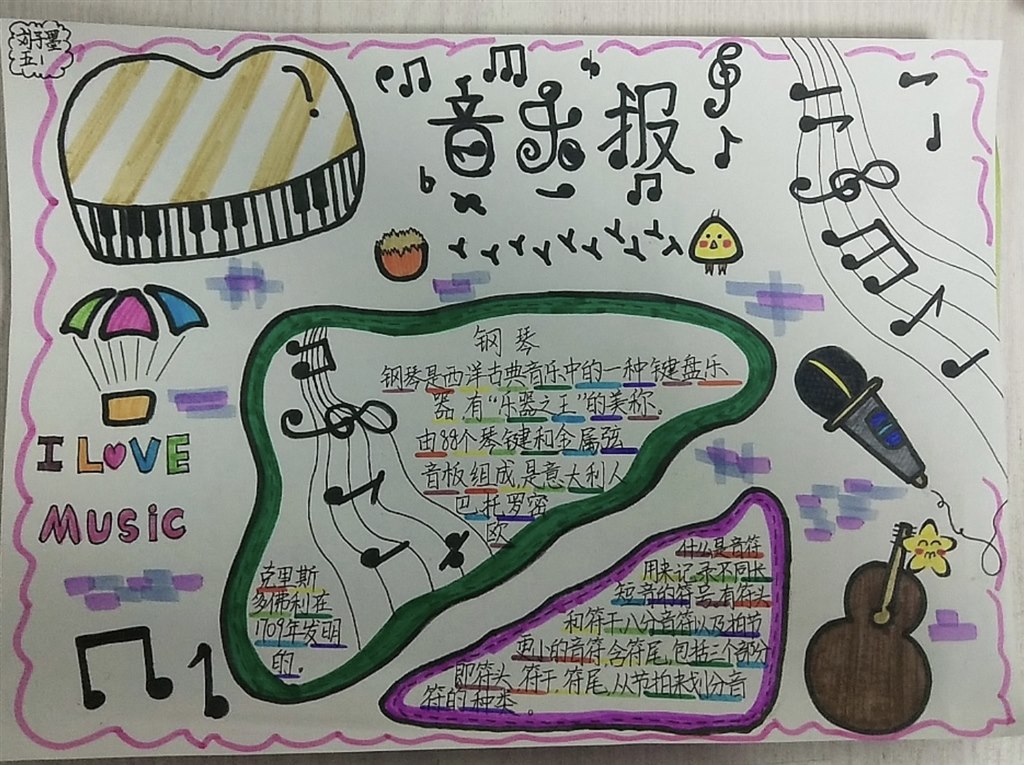 刘子墨
五1
音乐报
钢琴
钢琴是西洋古典音乐中的一种键盘乐
器,有“乐器之王”的美称。
由88个琴键和金属弦
音板组成,是意大利人
巴托罗密
欧
克里斯
多佛利在
1709年发明
的。
I LOVE
MUSIC
什么是音符
用来记录不同长
短音的符号,有符头
和符干八分音符以及拍节
更小的音符,含符尾,包括三个部分
即符头,符干,符尾,从节拍来划分音
符的种类。